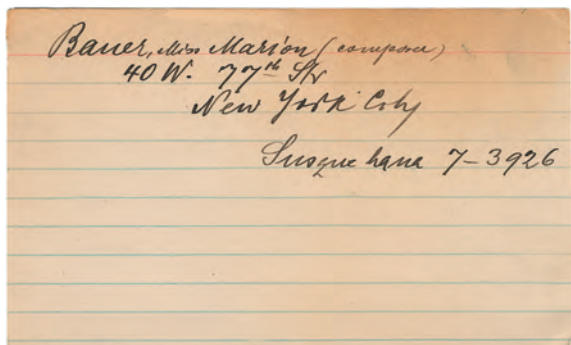 Bauer, Miss Marion (composer)
40 W. 77th Str
New York City
Susquehana 7-3926